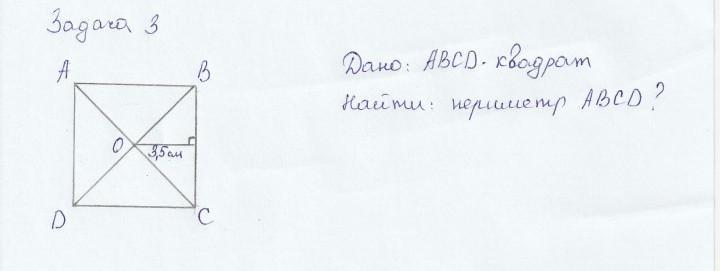 Задача 3
A B
Дано: ABCD - квадрат
Найти: периметр ABCD?
O 3,5 см
D C